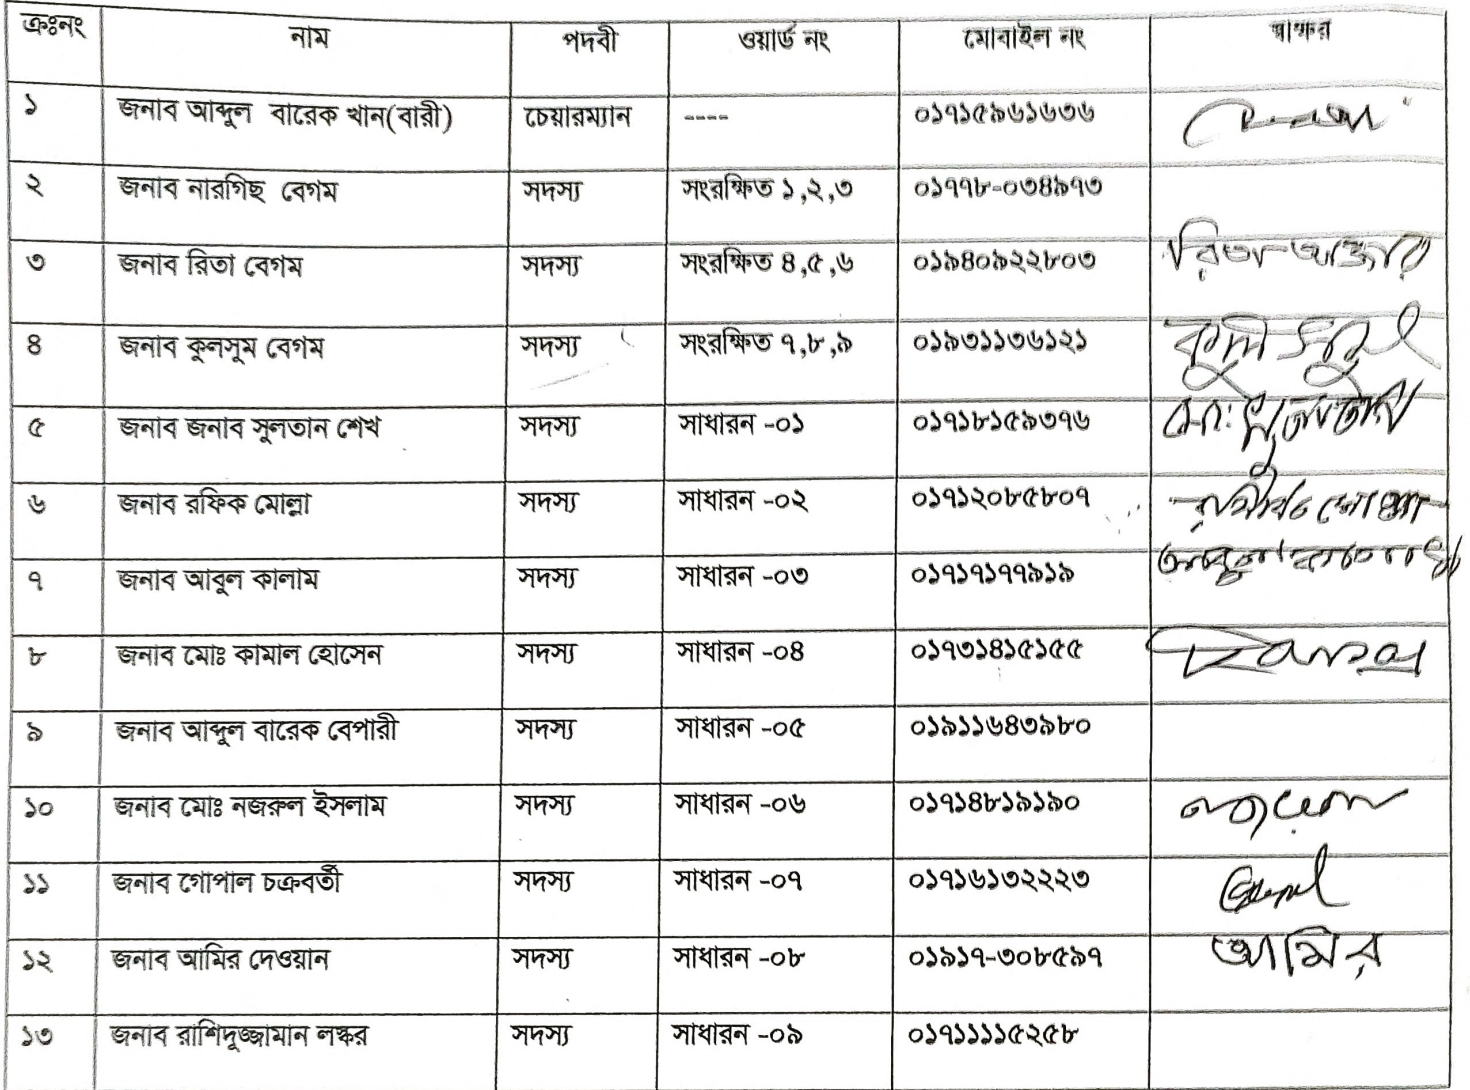 ক্রঃনং নাম পদবী ওয়ার্ড নং মোবাইল নং স্বাক্ষর
১ জনাব আব্দুল বারেক খান(বারী) চেয়ারম্যান ---- ০১৭১৫৯৬১৬৩৬
২ জনাব নারগিছ বেগম সদস্য সংরক্ষিত ১,২,৩ ০১৭৭৮-০৩৪৯৭৩
৩ জনাব রিতা বেগম সদস্য সংরক্ষিত ৪,৫,৬ ০১৯৪০৯২২৮০৩ রিতা আক্তার
৪ জনাব কুলসুম বেগম সদস্য সংরক্ষিত ৭,৮,৯ ০১৯৩১১৩৬১২১ কুলসুম
৫ জনাব জনাব সুলতান শেখ সদস্য সাধারন -০১ ০১৭১৮১৫৯৩৭৬
৬ জনাব রফিক মোল্লা সদস্য সাধারন -০২ ০১৭১২০৮৫৮০৭
৭ জনাব আবুল কালাম সদস্য সাধারন -০৩ ০১৭১৭১৭৭৯১৯
৮ জনাব মোঃ কামাল হোসেন সদস্য সাধারন -০৪ ০১৭৩১৪১৫১৫৫
৯ জনাব আব্দুল বারেক বেপারী সদস্য সাধারন -০৫ ০১৯১১৬৪৩৯৮০
১০ জনাব মোঃ নজরুল ইসলাম সদস্য সাধারন -০৬ ০১৭১৪৮১৯১৯০
১১ জনাব গোপাল চক্রবর্তী সদস্য সাধারন -০৭ ০১৭১৬১৩২২২৩
১২ জনাব আমির দেওয়ান সদস্য সাধারন -০৮ ০১৯১৭-৩০৮৫৯৭ আমির
১৩ জনাব রাশিদুজ্জামান লস্কর সদস্য সাধারন -০৯ ০১৭১১১১৫২৫৮